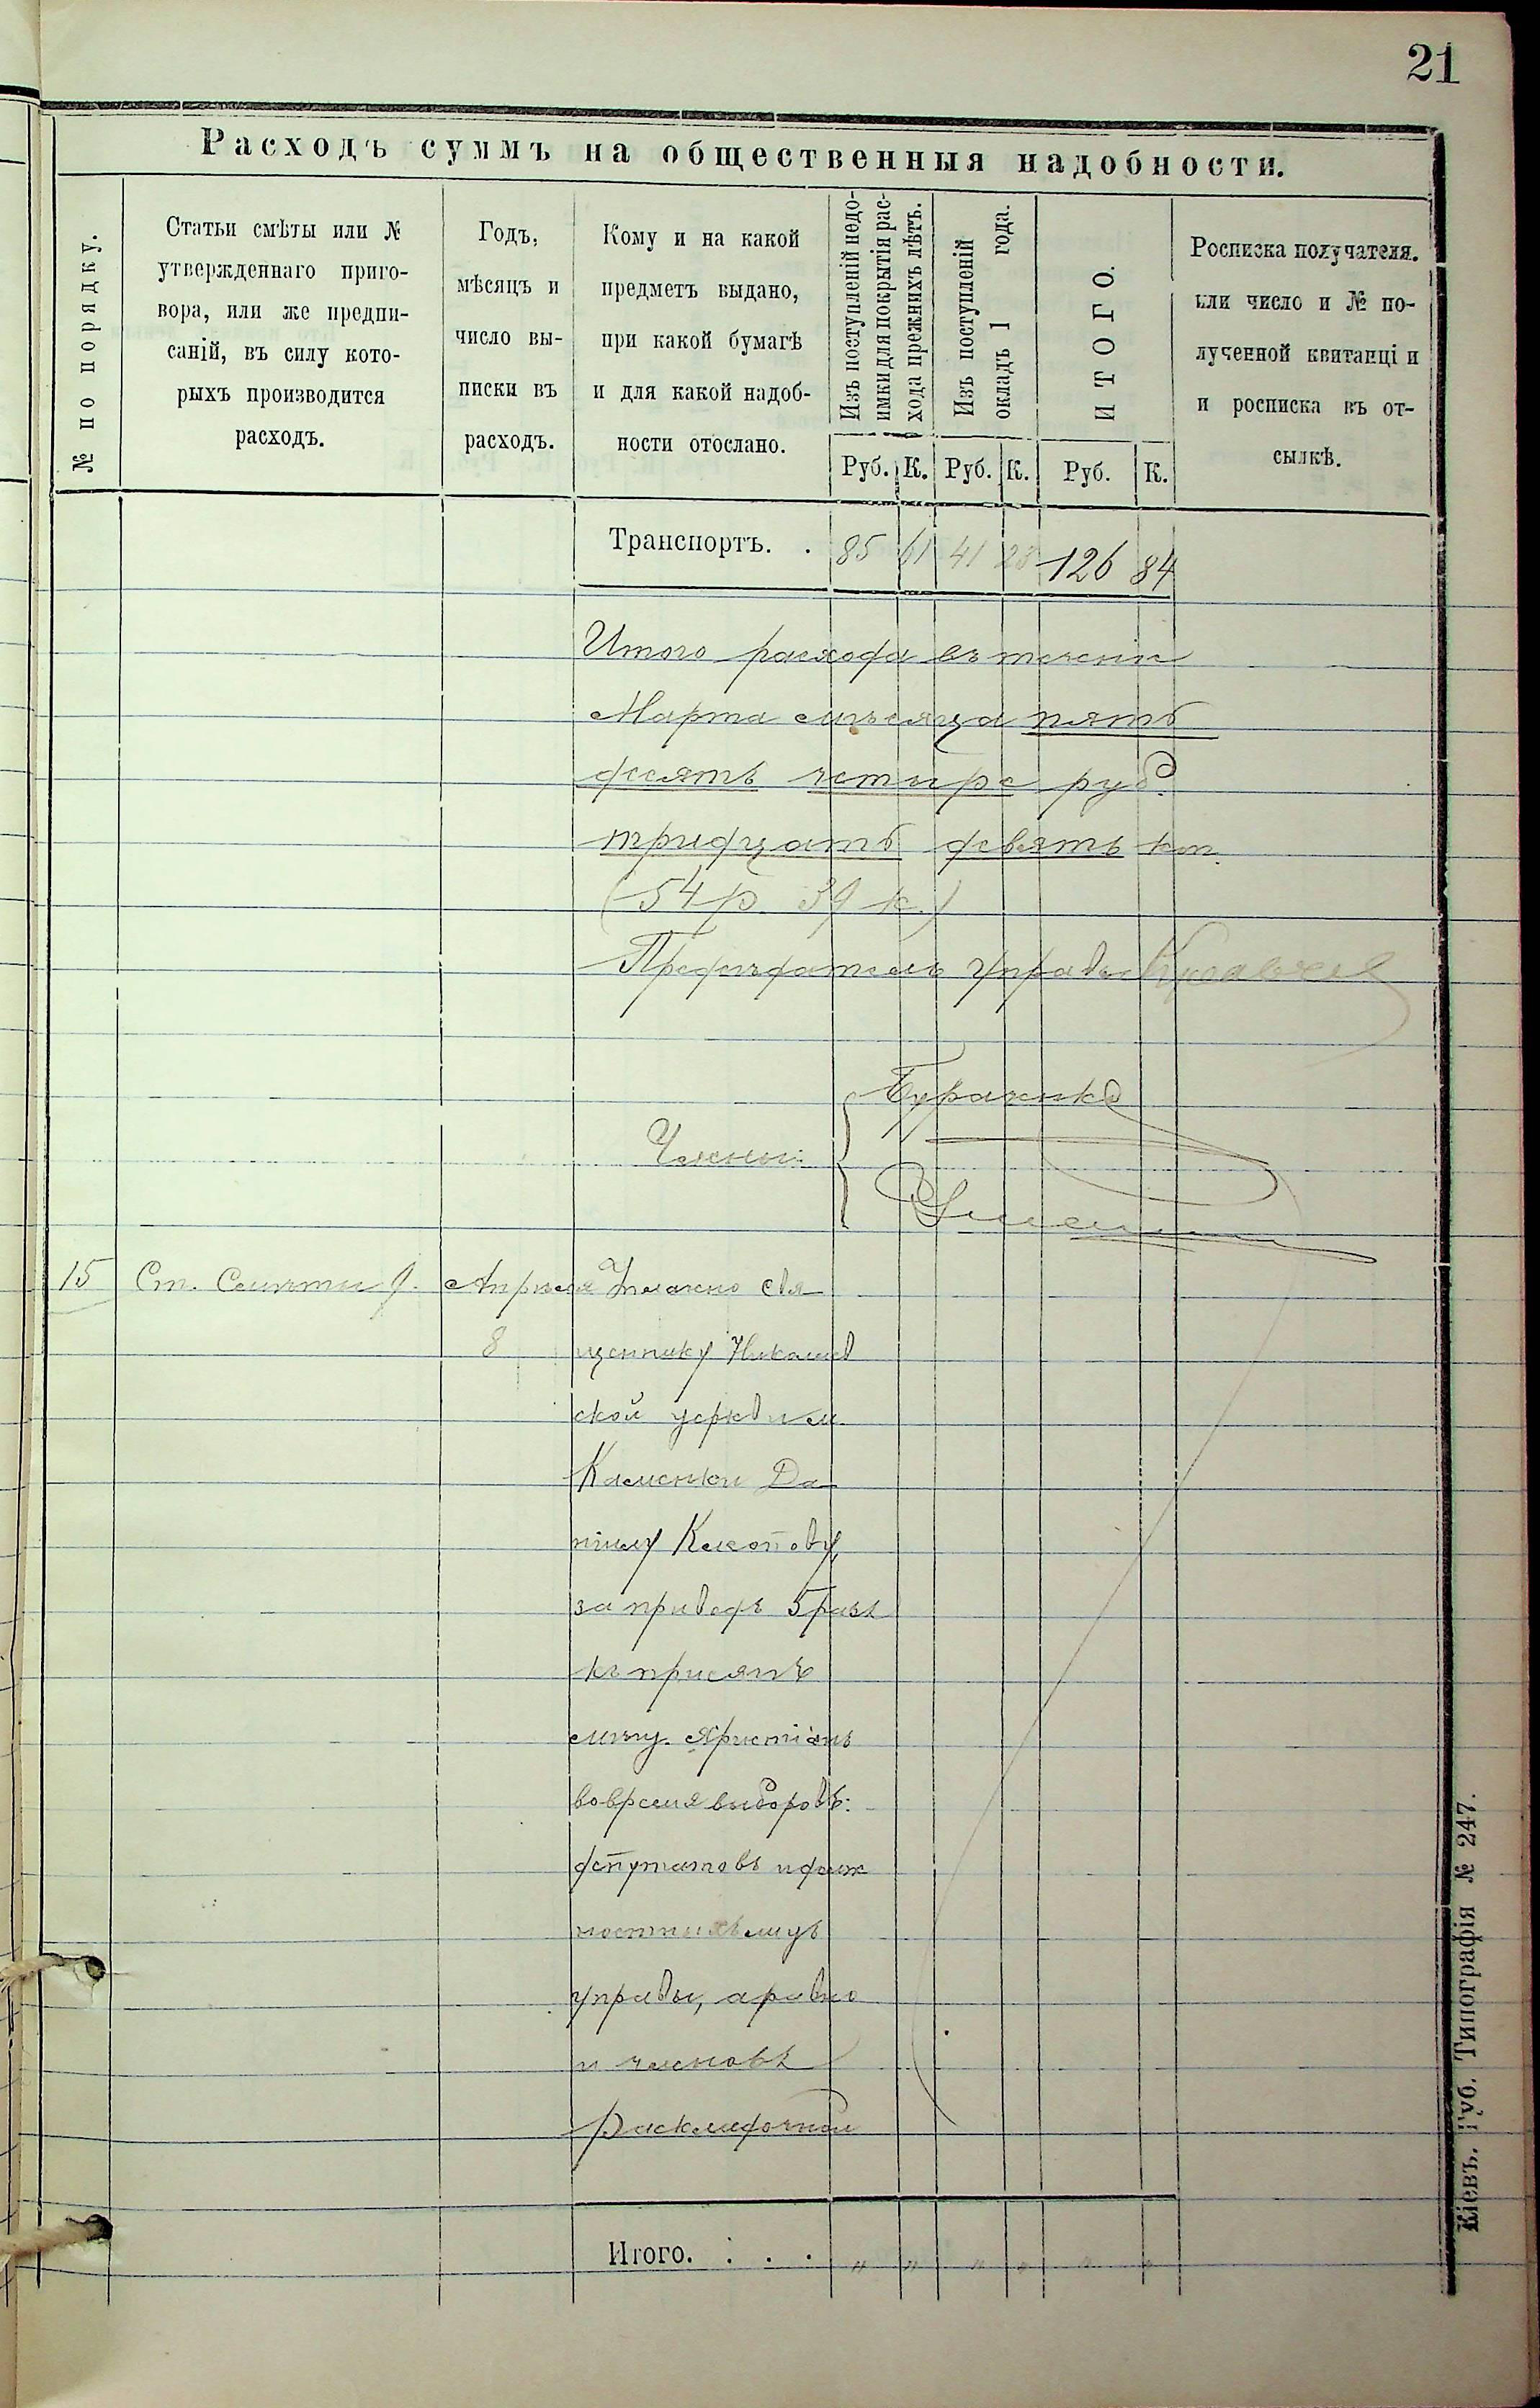 21
Расходъ суммъ на общественныя надобности.
№ по порядку.
Статьи смѣты или №
утвержденнаго приго-
вора, или же предпи-
саній, въ силу кото-
рыхъ производится
расходъ.
Годъ,
мѣсяцъ и
число вы-
писки въ
расходъ.
Кому и на какой
предметъ выдано,
при какой бумагѣ
и для какой надоб-
ности отослано.
Изъ поступленій недо-
имки для покрытія рас-
хода прежнихъ лѣтъ.
Изъ поступленій
окладъ 1 года.
ИТОГО.
Росписка получателя.
или число и № по-
лученной квитанціи
и росписка въ от-
сылкѣ.
Руб. К. Руб. К. Руб. К.
Транспортъ. . 85 61 41 23 126 84
Итого расхода въ течении
Марта мѣсяца пять
десятъ четыре руб.
тридцать девять коп.
(54 р. 39 к.)
Предсѣдатель Управы
Члены:
15 Ст. Смѣты 9. Апрѣля Уплачено свя
8 щеннику Николаев
ской церкви м.
Каменки Да
ніилу
за приводъ 5 разъ
къ присягѣ
мѣщ. христіанъ
во время выборовъ:
депутатовъ и долж
ностныхъ лицъ
управы, а равно
и членовъ
раскладочной
Итого. . . . " " " " " "
Кіевъ. Губ. Типографія № 247.